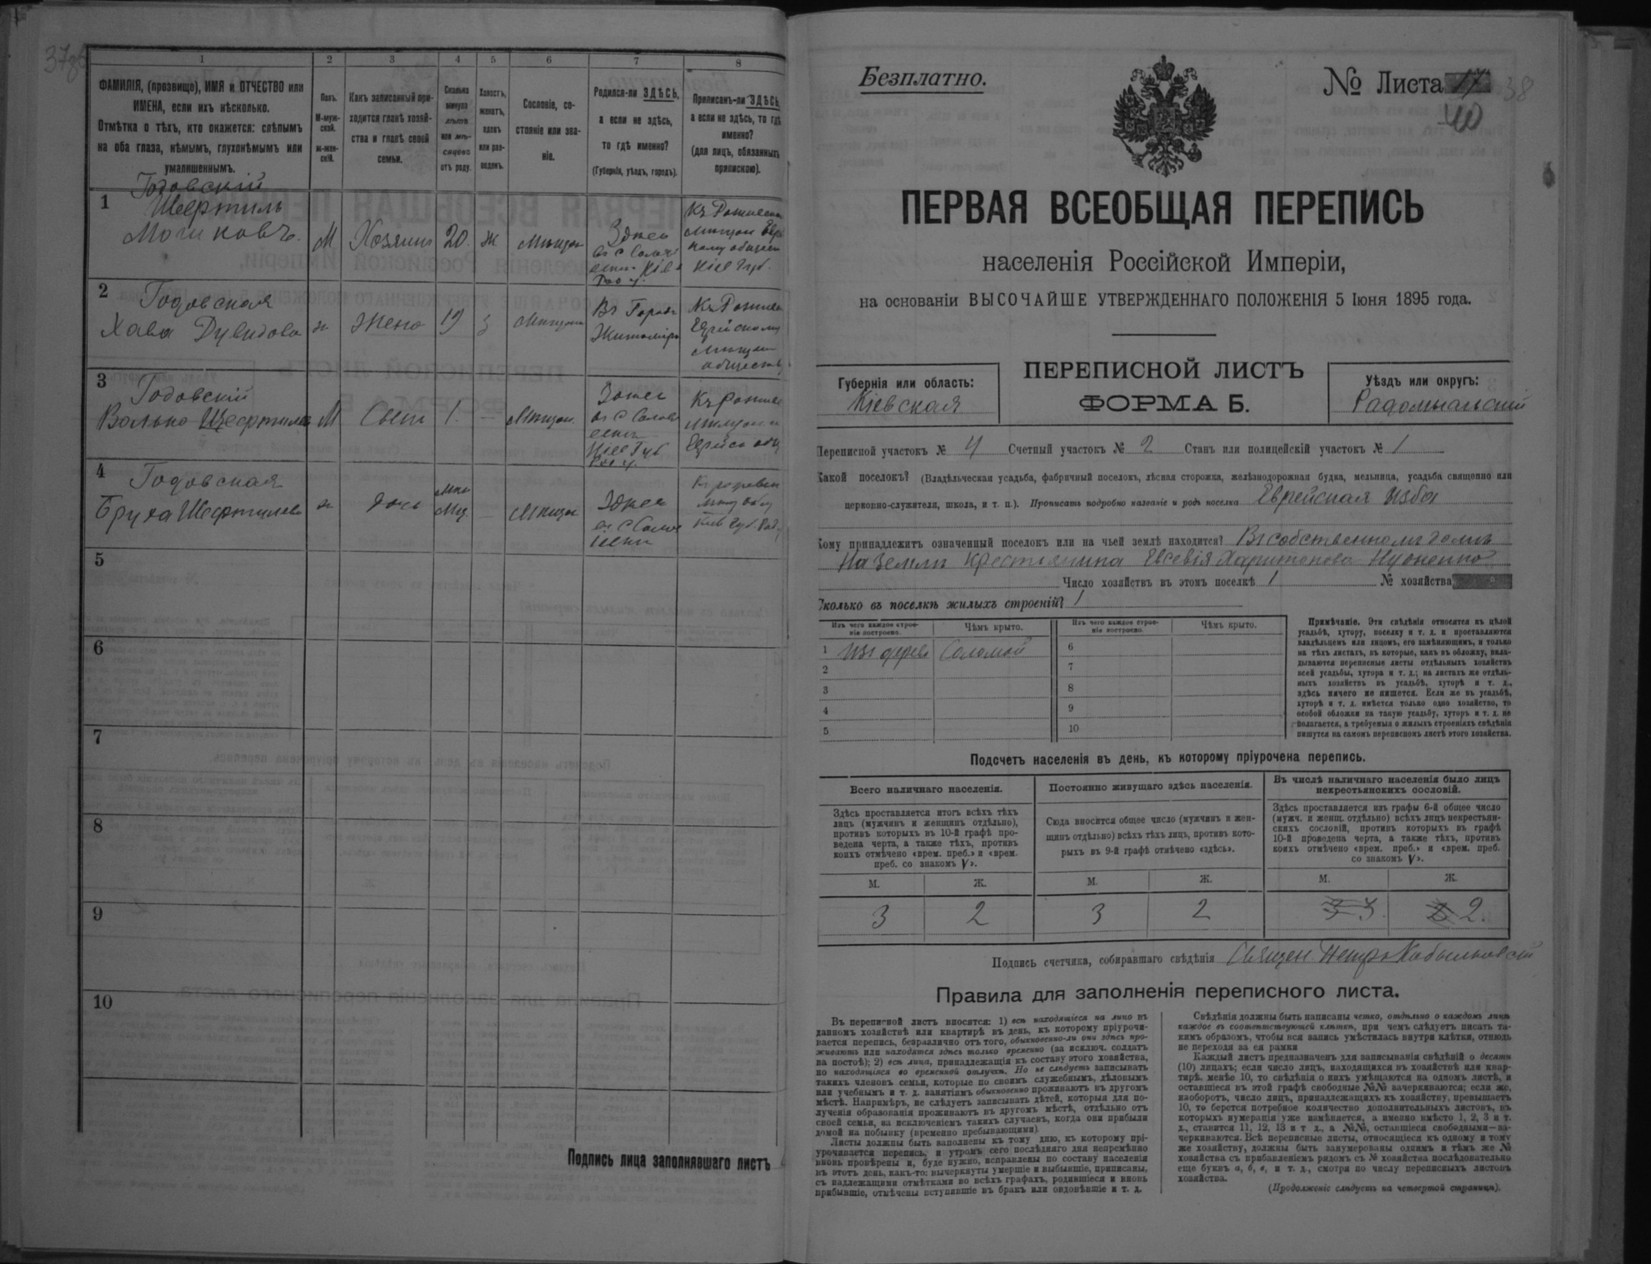 1
2
3
4
5
6
7
8
ФАМИЛІЯ, (прозвище), ИМЯ и ОТЧЕСТВО или
ИМЕНА, если ихъ нѣсколько.
Отмѣтка о тѣхъ, кто окажется: слѣпымъ
на оба глаза, нѣмымъ, глухонѣмымъ или
умалишеннымъ.
Полъ.
М-муж-
ской.
ж-жен-
скій.
Какъ записанный при-
ходится главѣ хозяй-
ства и главѣ своей
семьи.
Сколько
минуло
лѣтъ
или мѣ-
сяцевъ
отъ роду.
Холостъ,
женатъ,
вдовъ
или раз-
веденъ.
Сословіе, со-
стояніе или зва-
ніе.
Родился-ли ЗДѢСЬ,
а если не здѣсь,
то гдѣ именно?
(Губернія, уѣздъ, городъ).
Приписанъ-ли ЗДѢСЬ,
а если не здѣсь, то гдѣ
именно?
(для лицъ, обязанныхъ
припискою).
1
Годовскій
М
Хозяинъ
20.
ж
2
Годовская
Хава
Жена
19
Въ Городѣ
3
Годовскій
М
Сынъ
1.
4
Годовская
Дочь
5
6
7
8
9
10
Подпись лица заполнявшаго листъ
Безплатно.
№ Листа 17 38
40
ПЕРВАЯ ВСЕОБЩАЯ ПЕРЕПИСЬ
населенія Россійской Имперіи,
на основаніи ВЫСОЧАЙШЕ УТВЕРЖДЕННАГО ПОЛОЖЕНІЯ 5 Іюня 1895 года.
Губернія или область:
Кіевская
ПЕРЕПИСНОЙ ЛИСТЪ
ФОРМА Б.
Уѣздъ или округъ:
Радомысльскій
Переписной участокъ № 4 Счетный участокъ № 2 Станъ или полицейскій участокъ № 1
Какой поселокъ? (Владѣльческая усадьба, фабричный поселокъ, лѣсная сторожка, желѣзнодорожная будка, мельница, усадьба священно или
церковно-служителя, школа, и т. п.). Прописать подробно названіе и родъ поселка Еврейская изба
Кому принадлежитъ означенный поселокъ или на чьей землѣ находится? Въ собственномъ домѣ
на земли крестьянина Евсевія Харитонова
Число хозяйствъ въ этомъ поселкѣ 1 № хозяйства
Сколько въ поселкѣ жилыхъ строеній? 1
Изъ чего каждое строе-
ніе построено.
Чѣмъ крыто.
Изъ чего каждое строе-
ніе построено.
Чѣмъ крыто.
1 изъ дерева Соломой
2
3
4
5
6
7
8
9
10
Примѣчаніе. Эти свѣдѣнія относятся къ цѣлой
усадьбѣ, хутору, поселку и т. д. и проставляются
владѣльцемъ или лицомъ, его замѣняющимъ, и только
на тѣхъ листахъ, въ которые, какъ въ обложку, вкла-
дываются переписные листы отдѣльныхъ хозяйствъ
всей усадьбы, хутора и т. д.; на листахъ же отдѣль-
ныхъ хозяйствъ въ усадьбѣ, хуторѣ и т. д.,
здѣсь ничего не пишется. Если же въ усадьбѣ,
хуторѣ и т. д. имѣется только одно хозяйство, то
особой обложки на такую усадьбу, хуторъ и т. д. не
полагается, а требуемыя о жилыхъ строеніяхъ свѣдѣнія
пишутся на самомъ переписномъ листѣ этого хозяйства.
Подсчетъ населенія въ день, къ которому пріурочена перепись.
Всего наличнаго населенія.
Здѣсь проставляется итогъ всѣхъ тѣхъ
лицъ (мужчинъ и женщинъ отдѣльно),
противъ которыхъ въ 10-й графѣ про-
ведена черта, а также тѣхъ, противъ
коихъ отмѣчено «врем. преб.» и «врем.
преб. со знакомъ V».
Постоянно живущаго здѣсь населенія.
Сюда вносится общее число (мужчинъ и жен-
щинъ отдѣльно) всѣхъ тѣхъ лицъ, противъ кото-
рыхъ въ 9-й графѣ отмѣчено «здѣсь».
Въ числѣ наличнаго населенія было лицъ
некрестьянскихъ сословій.
Здѣсь проставляется изъ графы 6-й общее число
(мужч. и женщ. отдѣльно) всѣхъ лицъ некрестьян-
скихъ сословій, противъ которыхъ въ графѣ
10-й проведена черта, а также тѣхъ, противъ
коихъ отмѣчено «врем. преб.» и «врем. преб.
со знакомъ V».
М. Ж. М. Ж. М. Ж.
3 2 3 2 3 2.
Подпись счетчика, собиравшаго свѣдѣнія Священ Петръ
Правила для заполненія переписного листа.
Въ переписной листъ вносятся: 1) всѣ находящіеся на лицо въ
данномъ хозяйствѣ или квартирѣ въ день, къ которому пріурочи-
вается перепись, безразлично отъ того, обыкновенно-ли они здѣсь про-
живаютъ или находятся здѣсь только временно (за исключ. солдатъ
на постоѣ); 2) всѣ лица, принадлежащія къ составу этого хозяйства,
но находящіяся во временной отлучкѣ. Но не слѣдуетъ записывать
такихъ членовъ семьи, которые по своимъ служебнымъ, дѣловымъ
или учебнымъ и т. д. занятіямъ обыкновенно проживаютъ въ другомъ
мѣстѣ. Напримѣръ, не слѣдуетъ записывать дѣтей, которыя для по-
лученія образованія проживаютъ въ другомъ мѣстѣ, отдѣльно отъ
своей семьи, за исключеніемъ такихъ случаевъ, когда они прибыли
домой на побывку (временно пребывающими).
Листы должны быть заполнены къ тому дню, къ которому прі-
урочивается перепись, и утромъ сего послѣдняго дня непремѣнно
вновь провѣрены и, буде нужно, исправлены по составу населенія
въ этотъ день, какъ-то: вычеркнуты умершіе и выбывшіе, приписаны,
съ надлежащими отмѣтками во всѣхъ графахъ, родившіеся и вновь
прибывшіе, отмѣчены вступившіе въ бракъ или овдовѣвшіе и т. д.
Свѣдѣнія должны быть написаны четко, отдѣльно о каждомъ лицѣ
каждое въ соотвѣтствующей клѣткѣ, при чемъ слѣдуетъ писать та-
кимъ образомъ, чтобы вся запись умѣстилась внутри клѣтки, отнюдь
не переходя за ея рамки
Каждый листъ предназначенъ для записыванія свѣдѣній о десяти
(10) лицахъ; если число лицъ, находящихся въ хозяйствѣ или квар-
тирѣ, менѣе 10, то свѣдѣнія о нихъ умѣщаются на одномъ листѣ, и
оставшіеся въ этой графѣ свободные №№ зачеркиваются; если же,
наоборотъ, число лицъ, принадлежащихъ къ хозяйству, превышаетъ
10, то берется потребное количество дополнительныхъ листовъ, въ
которыхъ нумерація уже измѣняется, а именно вмѣсто 1, 2, 3 и т.
д., ставится 11, 12, 13 и т. д., а №№, оставшіеся свободными—за-
черкиваются. Всѣ переписные листы, относящіеся къ одному и тому
же хозяйству, должны быть занумерованы однимъ и тѣмъ же №
хозяйства съ прибавленіемъ рядомъ съ № хозяйства послѣдовательно
еще буквъ а, б, в, и т. д., смотря по числу переписныхъ листовъ
хозяйства.
(Продолженіе слѣдуетъ на четвертой страницѣ).